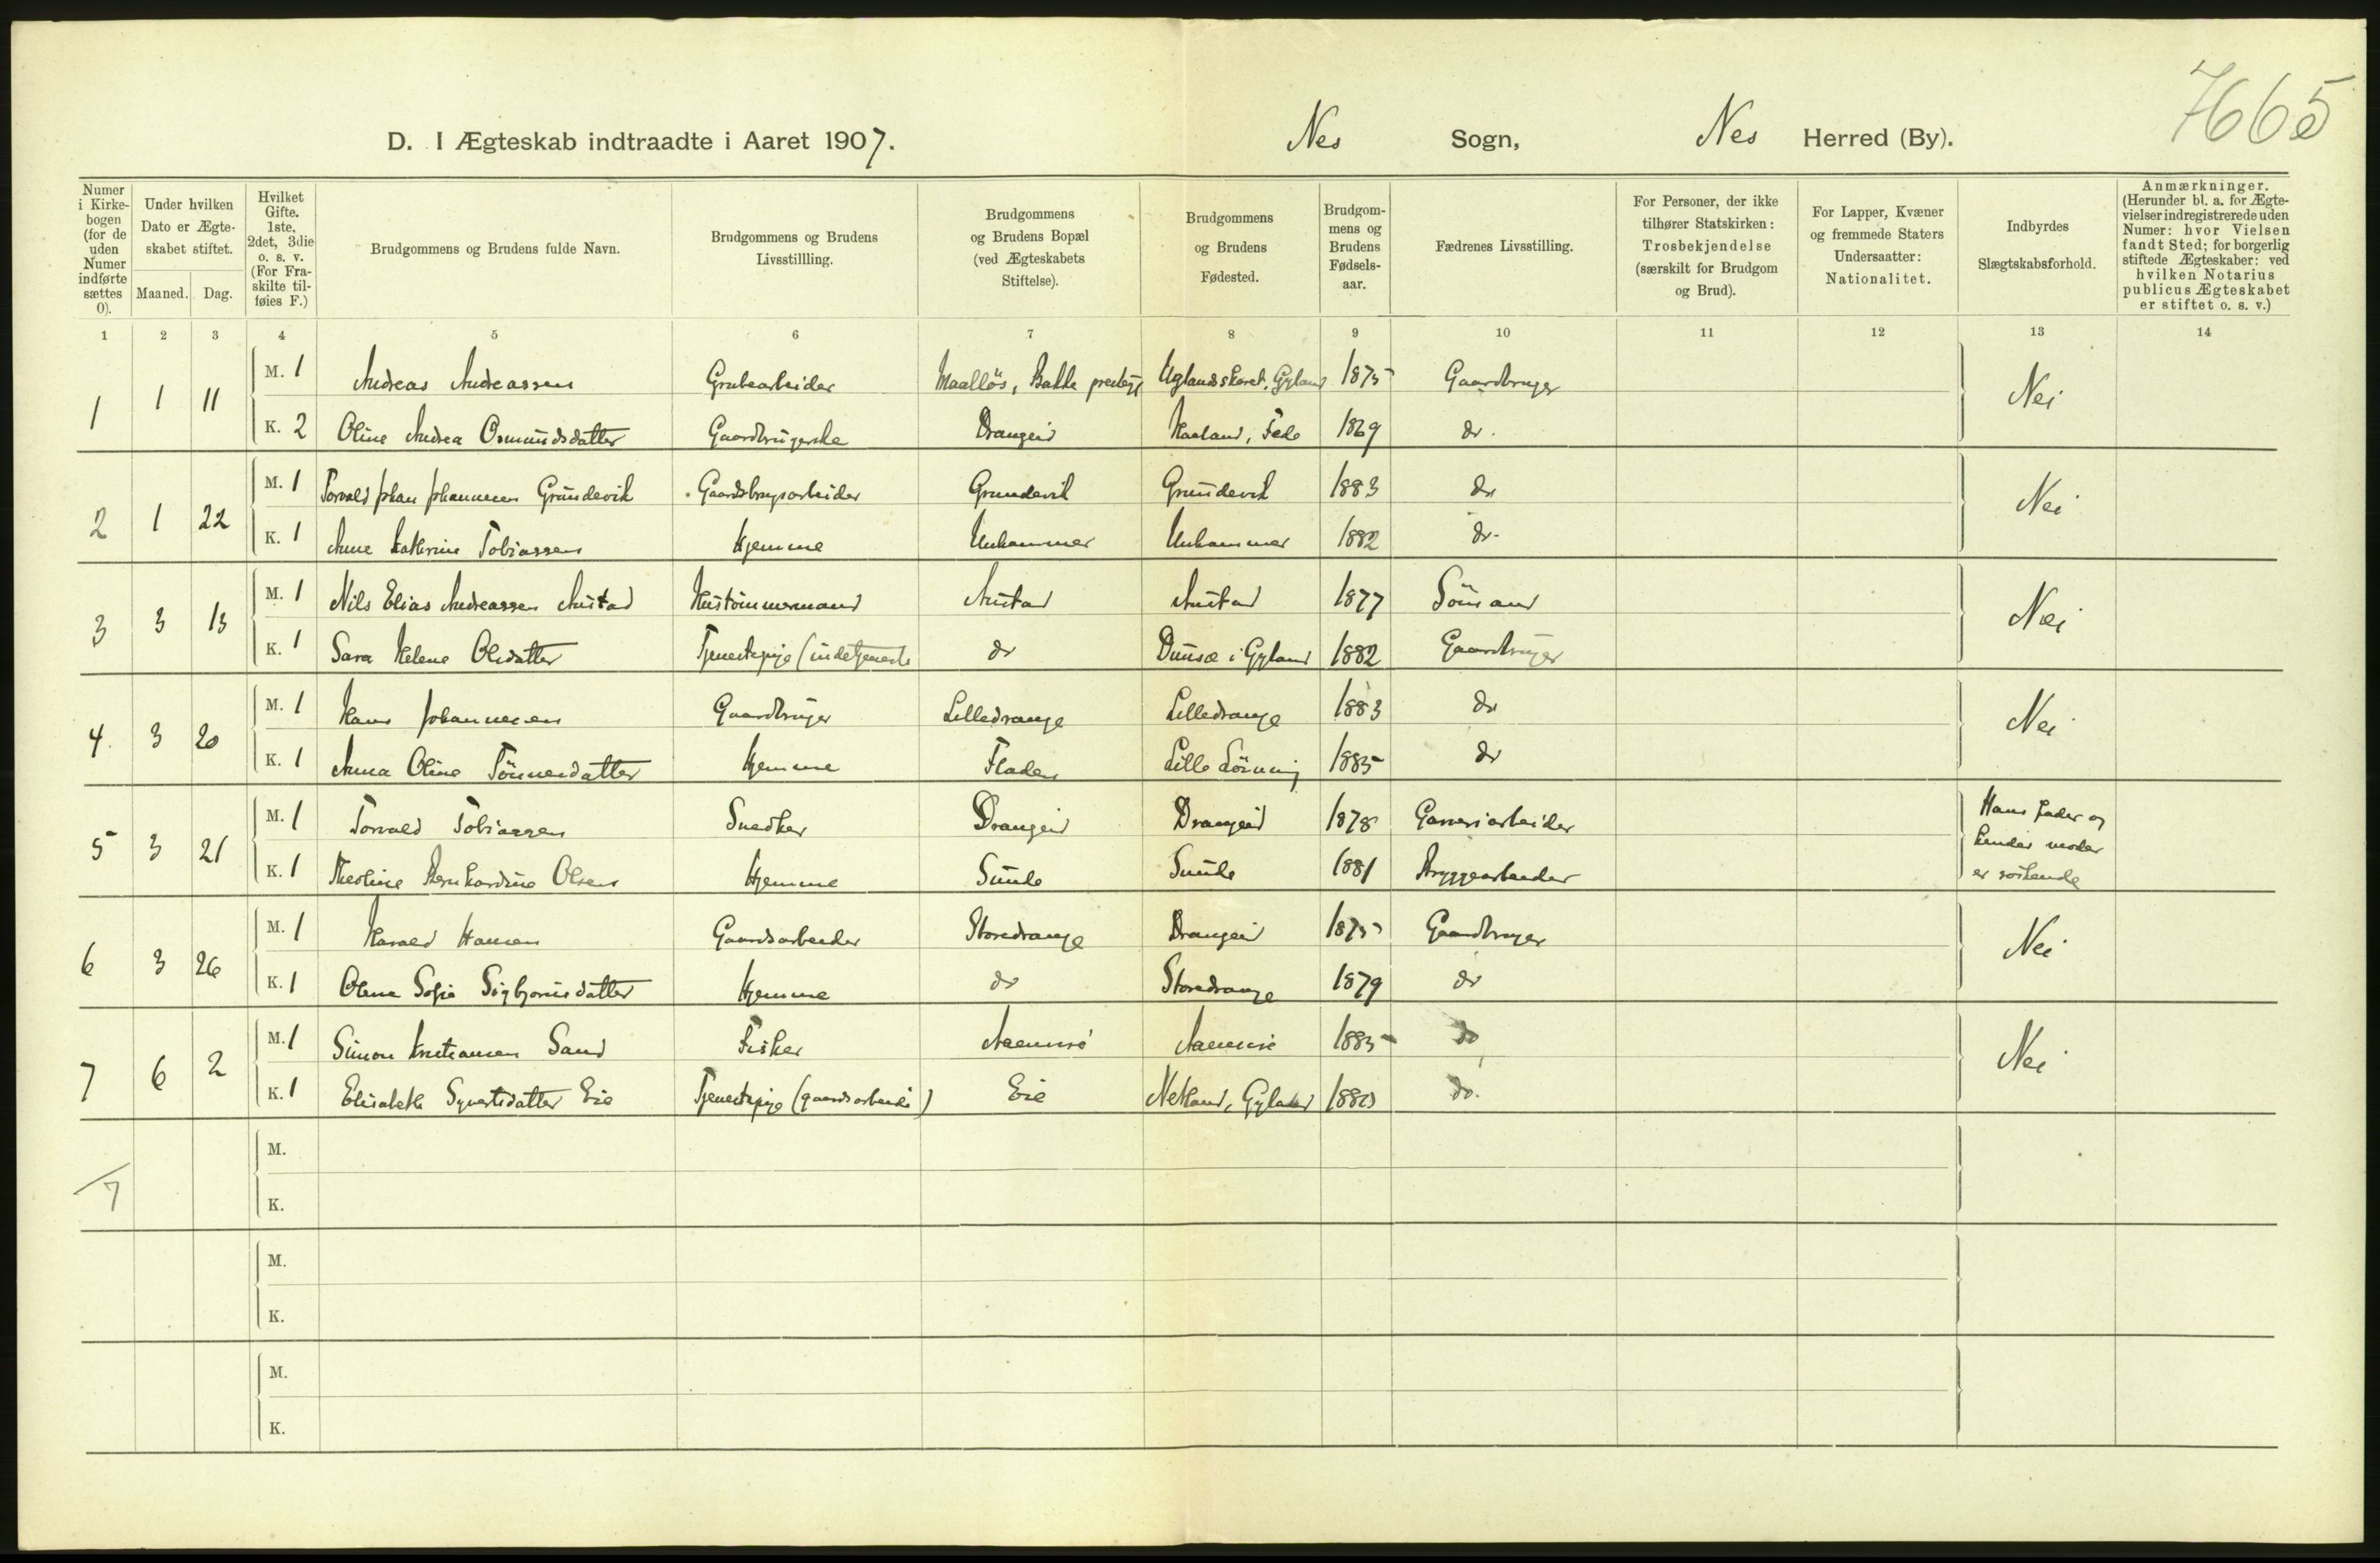 7665
D. I Ægteskab indtraadte i Aaret 1907. Nes Sogn, Nes Herred (By).
Numer i Kirkebogen (for de uden Numer indførte sættes 0).
Under hvilken Dato er Ægteskabet stiftet.
Maaned. Dag.
Hvilket Gifte. 1ste, 2det, 3die o. s. v. (For Fraskilte tilføies F.)
Brudgommens og Brudens fulde Navn.
Brudgommens og Brudens Livsstillling.
Brudgommens og Brudens Bopæl (ved Ægteskabets Stiftelse).
Brudgommens og Brudens Fødested.
Brudgommens og Brudens Fødselsaar.
Fædrenes Livsstilling.
For Personer, der ikke tilhører Statskirken: Trosbekjendelse (særskilt for Brudgom og Brud).
For Lapper, Kvæner og fremmede Staters Undersaatter: Nationalitet.
Indbyrdes Slægtskabsforhold.
Anmærkninger. (Herunder bl. a. for Ægtevielser indregistrerede uden Numer: hvor Vielsen fandt Sted; for borgerlig stiftede Ægteskaber: ved hvilken Notarius publicus Ægteskabet er stiftet o. s. v.)
1 2 3 4 5 6 7 8 9 10 11 12 13 14
1 1 11 M. 1 Andreas Andreassen Grubearbeider Maalløs, Bakke Uglandsskaret, Gyland 1875 Gaardbruger Nei
K. 2 Oline Andrea Osmundsdatter Gaardbrugerske Drangeid Haaland, Fede 1869 do.
2 1 22 M. 1 Torvald Johan Johannesen Grundevik Gaardsbrugsarbeider Grundevik Grundevik 1883 do Nei
K. 1 Anne Kathrine Tobiassen Hjemme Unhammer Unhammer 1882 do.
3 3 13 M. 1 Nils Elias Andreassen Austad Hustømmermand Austad Austad 1877 Sømand Nei
K. 1 Sara Helene Olsdatter Tjenestepige (indetjeneste do Dunsæ i Gyland 1882 Gaardbruger
4 3 20 M. 1 Hans Johannesen Gaardbruger Lilledrange Lilledrange 1883 do Nei
K. 1 Anna Oline Tønnesdatter Hjemme Fladen Lille Lønning 1885 do
5 3 21 M. 1 Torvald Tobiassen Snedker Drangeid Drangeid 1878 Garveriarbeider Hans fader og
K. 1 Theoline Bernhardine Olsen Hjemme Sunde Sunde 1881 Bryggearbeider hendes moder
er søskende
6 3 26 M. 1 Harald Hansen Gaardsarbeider Storedrange Drangeid 1875 Gaardbruger Nei
K. 1 Olene Sofie Sigbjørnsdatter Hjemme do Storedrange 1879 do
7 6 2 M. 1 Simon Kristiansen Sand Fisker 1885 do Nei
K. 1 Elisabeth Syvertsdatter Eie Tjenestepige (gaardsarbeide) Eie Netland, Gyland do.
M.
7
K.
M.
K.
M.
K.